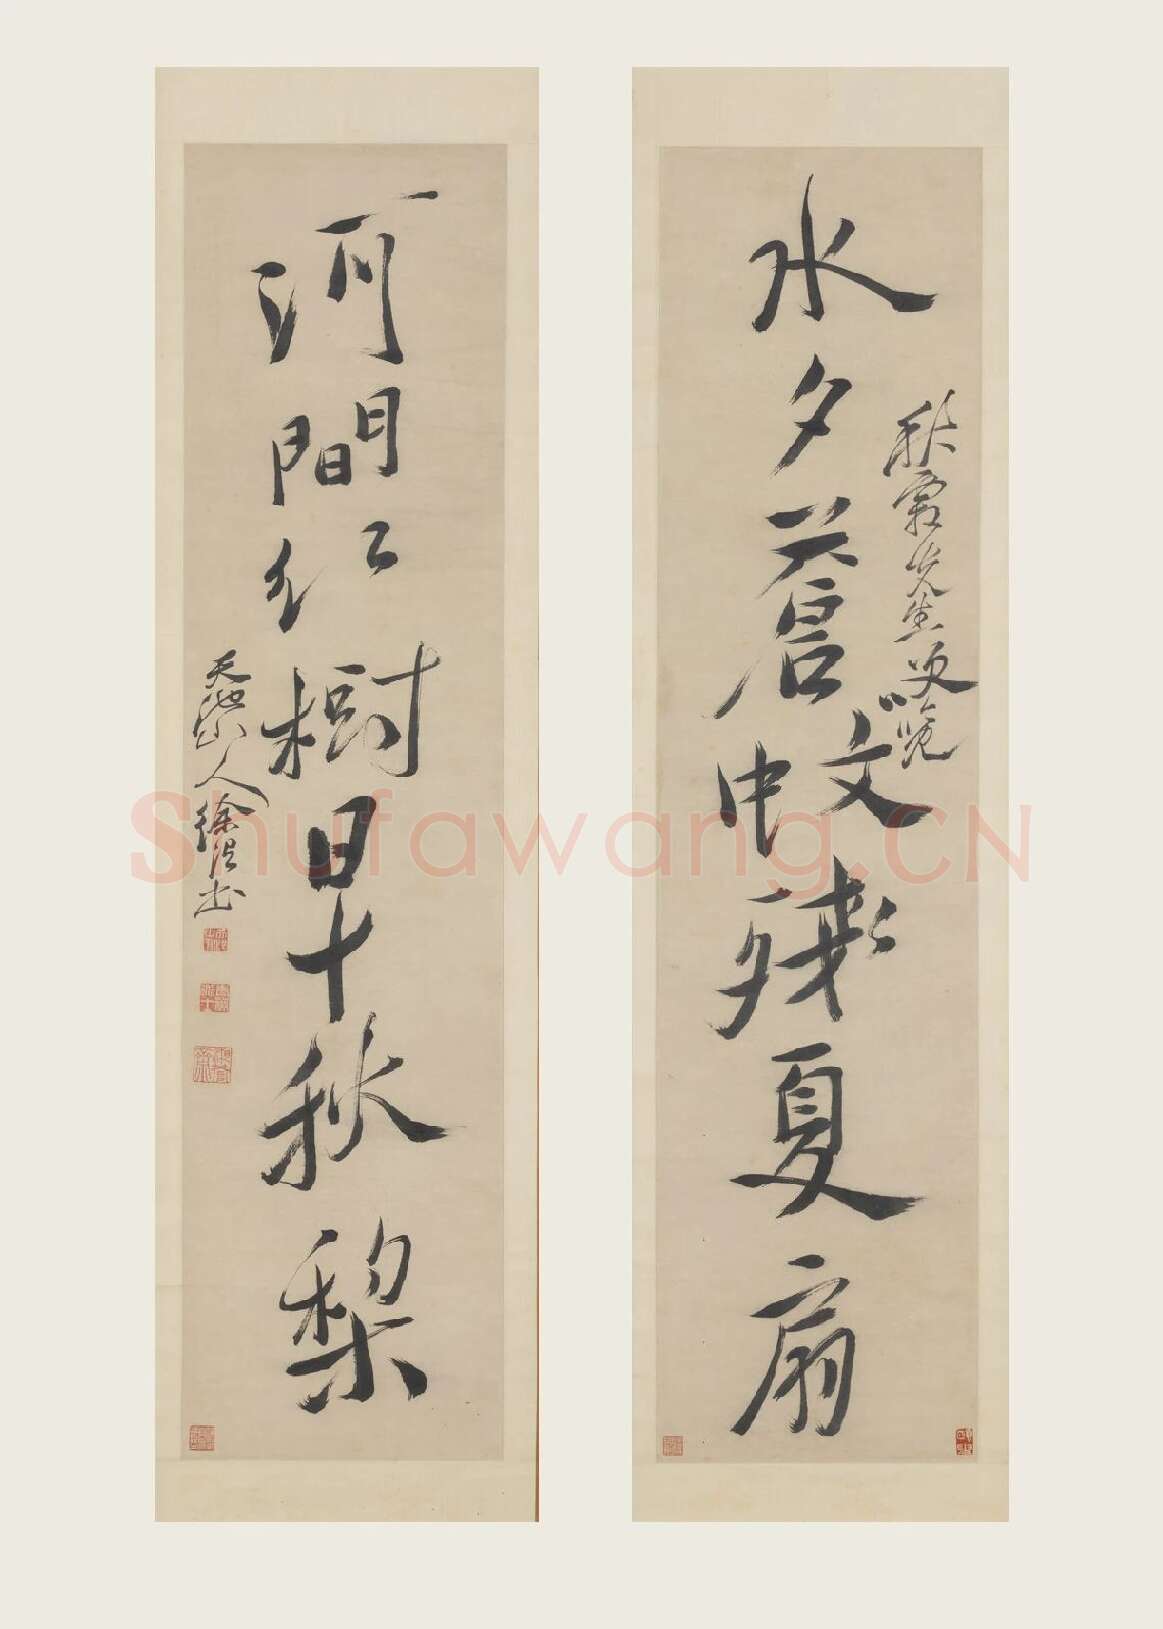 秋先生覽
水夕蒼蚊殘夏扇
河間紅樹早秋梨
天池山人徐渭書
Shufawang.CN